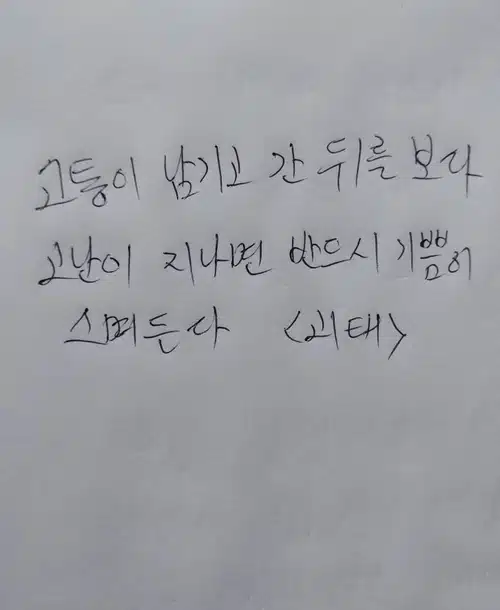 고통이 남기고 간 뒤를 보라
고난이 지나면 반드시 기쁨이
스며든다 <괴태>